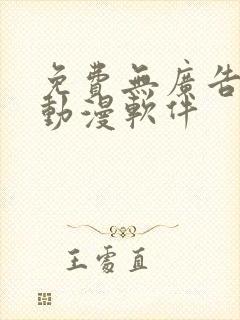 免費無廣告
動漫軟件
王雩直